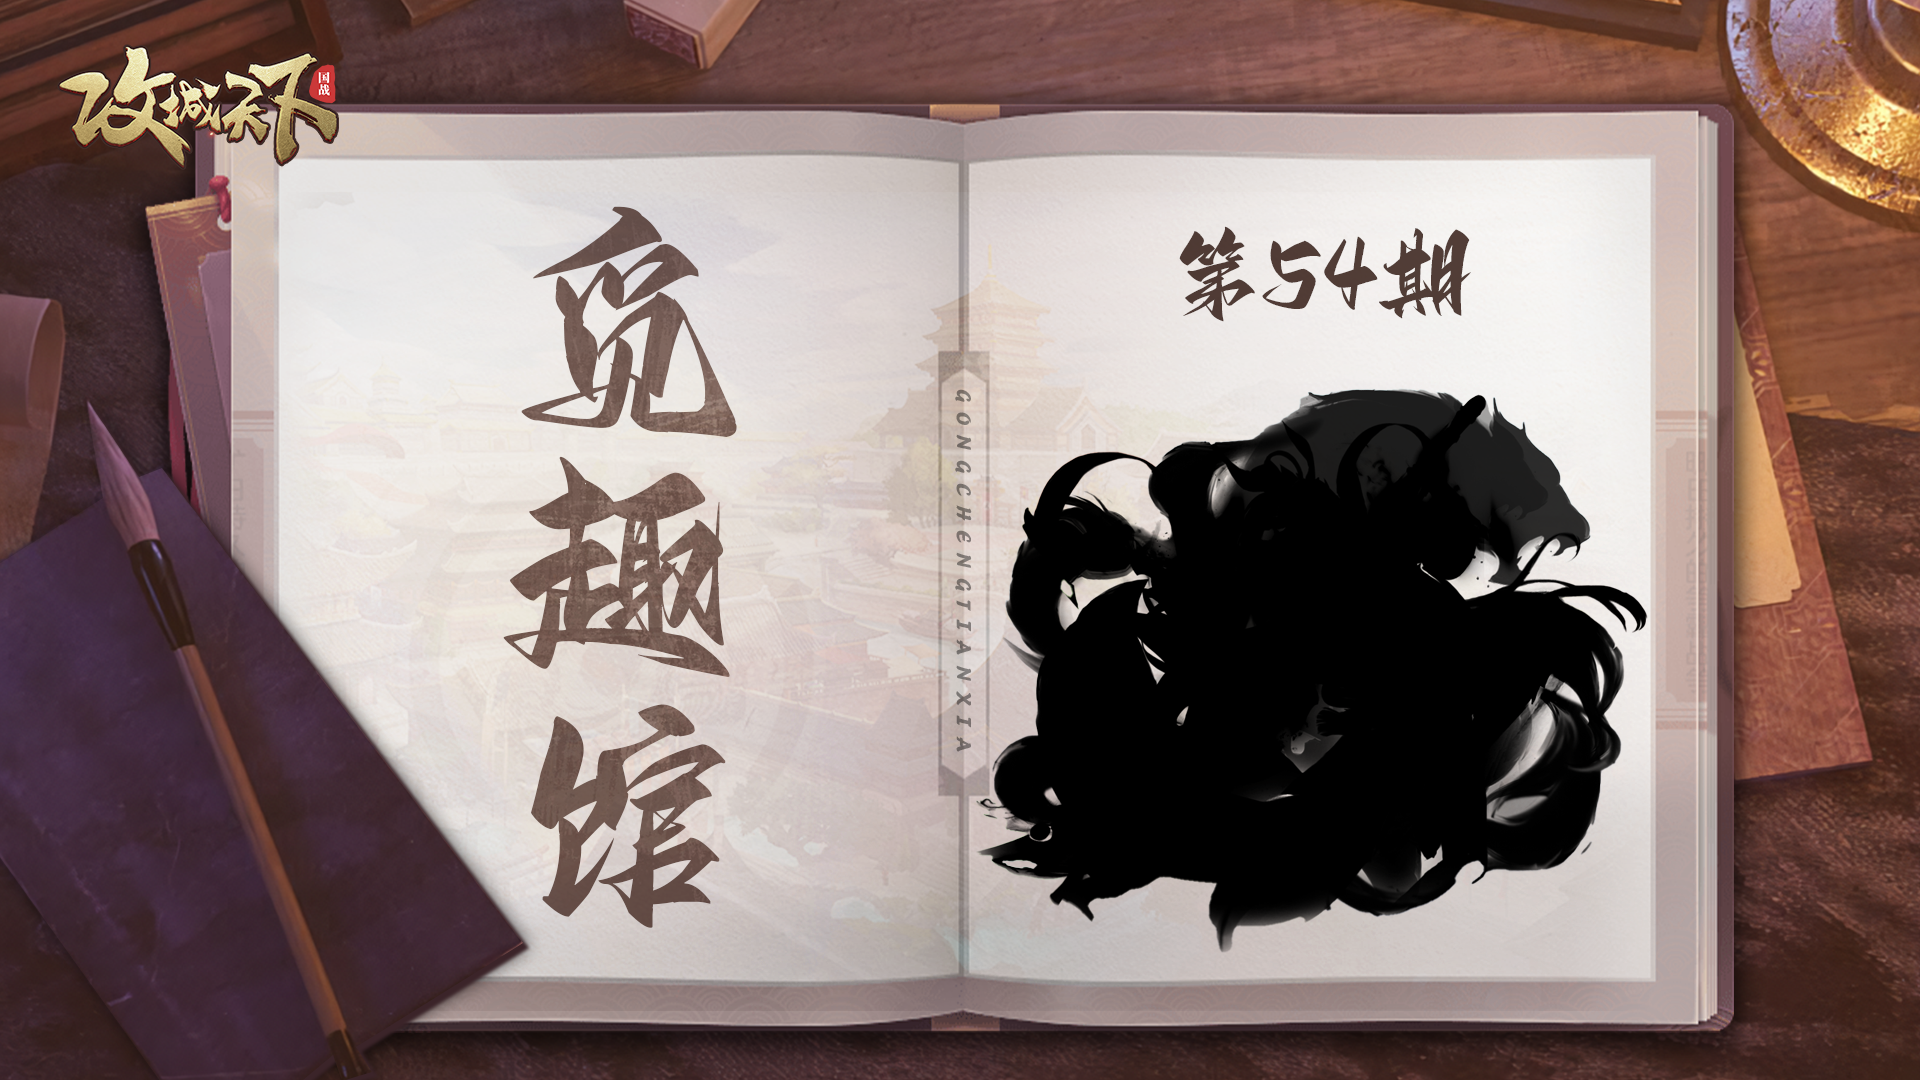 攻城天下
国战
觅趣馆
GONGCHENGTIANXIA
第54期